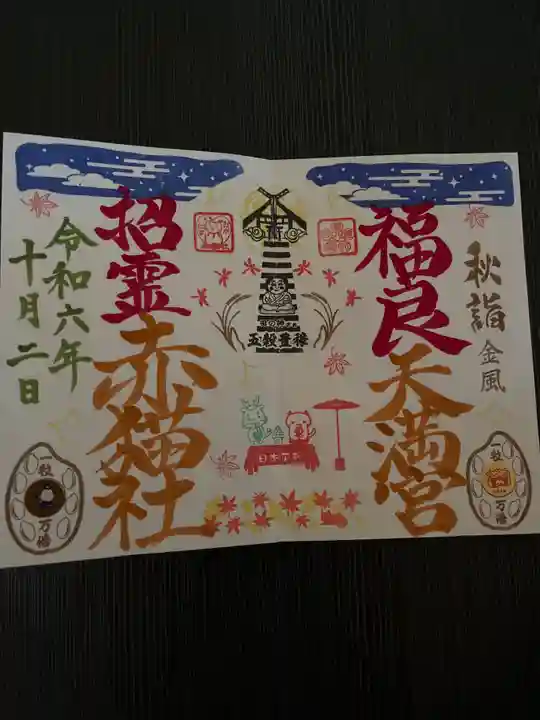 秋詣
金風
福良
天満宮
五穀豊穣
招霊
赤猫社
令和六年
十月二日
一粒
万倍
一粒
万倍